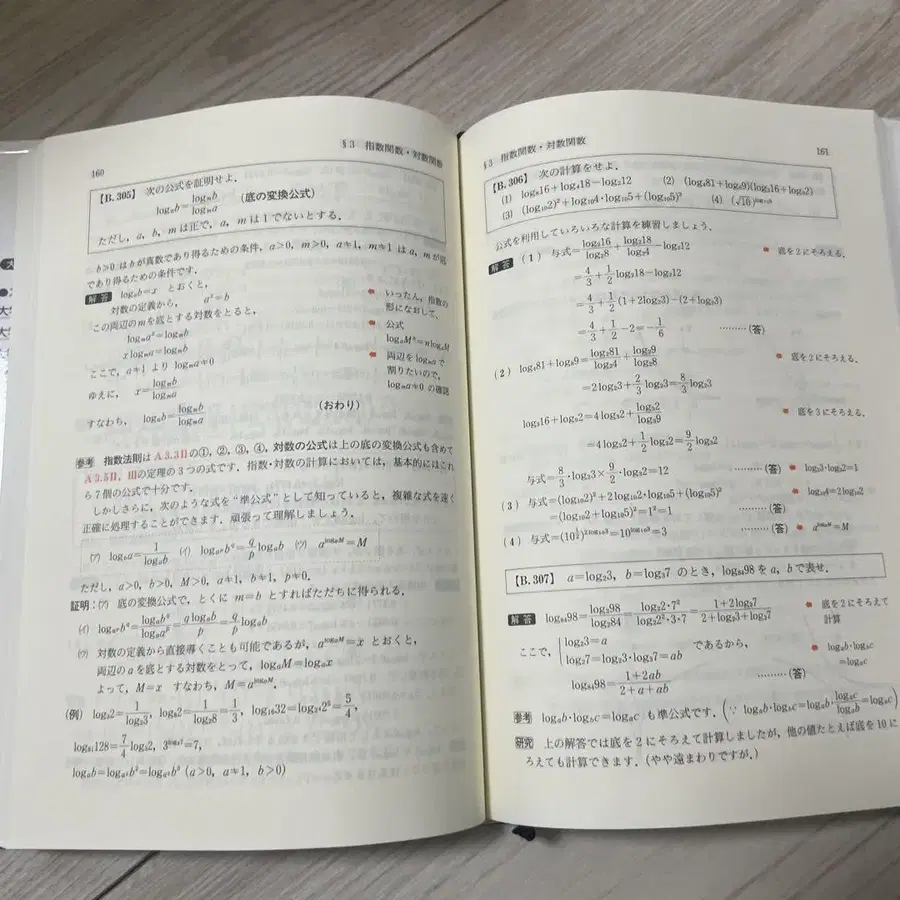 160
§3 指数関数・対数関数
【B.305】 次の公式を証明せよ．
logₐb = logₘb/logₘa (底の変換公式)
ただし，a，b，m は正で，a，m は 1 でないとする．
b>0 は b が真数であり得るための条件，a>0，m>0，a≠1，m≠1 は a，m が底
であり得るための条件です．
解答 logₐb=x とおくと，
対数の定義から， aˣ=b
いったん，指数の
形になおして，
この両辺の m を底とする対数をとると，
公式
logₘaˣ=logₘb
x logₘa=logₘb
両辺を logₘa で
割りたいので，
ここで，a≠1 より logₘa≠0
logₘa≠0 の確認
ゆえに， x=logₘb/logₘa
すなわち， logₐb=logₘb/logₘa
(おわり)
参考 指数法則は A 3.3Ⅱ の①，②，③，④，対数の公式は上の底の変換公式も含めて
A 3.5Ⅱ，Ⅲ の定理の3つの式です．指数・対数の計算においては，基本的にはこれ
ら7個の公式で十分です．
しかしさらに，次のような式を“準公式”として知っていると，複雑な式を速く
正確に処理することができます．頑張って理解しましょう．
(ア) log_b a=1/logₐb (イ) log_{a^p} b^q=(q/p)logₐb (ウ) a^{logₐM}=M
ただし，a>0，b>0，M>0，a≠1，b≠1，p≠0．
証明：(ア) 底の変換公式で，とくに m=b とすればただちに得られる．
(イ) log_{a^p} b^q=logₐb^q/logₐa^p=q logₐb/p=(q/p)logₐb
(ウ) 対数の定義から直接導くことも可能であるが，a^{logₐM}=x とおくと，
両辺の a を底とする対数をとって，logₐM=logₐx
よって，M=x すなわち，M=a^{logₐM}．
(例) log₃2=1/log₂3，log₈2=1/log₂8=1/3，log₁₆32=log_{2⁴}2⁵=5/4，
7/4 log₃2，
=7，
(a>0，a≠1，b>0)
§3 指数関数・対数関数
161
【B.306】 次の計算をせよ．
(1) log₈16+log₄18−log₂12 (2) (log₄81+log₈9)(log₃16+log₉2)
(3) (log₁₀2)²+log₁₀4·log₁₀5+(log₁₀5)² (4)
公式を利用していろいろな計算を練習しましょう．
解答 (1) 与式=log₂16/log₂8+log₂18/log₂4−log₂12
底を2にそろえる．
=4/3+(1/2)log₂18−log₂12
=4/3+(1/2)(1+2log₂3)−(2+log₂3)
=4/3+1/2−2=−1/6 ………(答)
(2) log₄81+log₈9=log₂81/log₂4+log₂9/log₂8
底を2にそろえる．
=2log₂3+(2/3)log₂3=(8/3)log₂3
log₃16+log₉2=4log₃2+log₃2/log₃9
底を3にそろえる．
=4log₃2+(1/2)log₃2=(9/2)log₃2
与式=(8/3)·log₂3×(9/2)·log₃2=12 ………(答)
log₂3·log₃2=1
(3) 与式=(log₁₀2)²+2log₁₀2·log₁₀5+(log₁₀5)²
log₁₀4=2log₁₀2
=(log₁₀2+log₁₀5)²=1²=1 ………(答)
(4) 与式=(10^{1/2})^{2log₁₀3}=10^{log₁₀3}=3 ………(答)
a^{logₐM}=M
【B.307】 a=log₂3，b=log₃7 のとき，log₈₄98 を a，b で表せ．
解答 log₈₄98=log₂98/log₂84=log₂2·7²/log₂2²·3·7=(1+2log₂7)/(2+log₂3+log₂7)
底を2にそろえて
計算
ここで，{log₂3=a
log₂7=log₂3·log₃7=ab であるから，
logₐb·log_b c
=logₐc
log₈₄98=(1+2ab)/(2+a+ab) ………(答)
参考 logₐb·log_b c=logₐc も準公式です．(∵ logₐb·log_b c=logₐb·logₐc/logₐb=logₐc)
研究 上の解答では底を2にそろえて計算しましたが，他の値たとえば底を10に
ろえても計算できます．(やや遠まわりですが．)